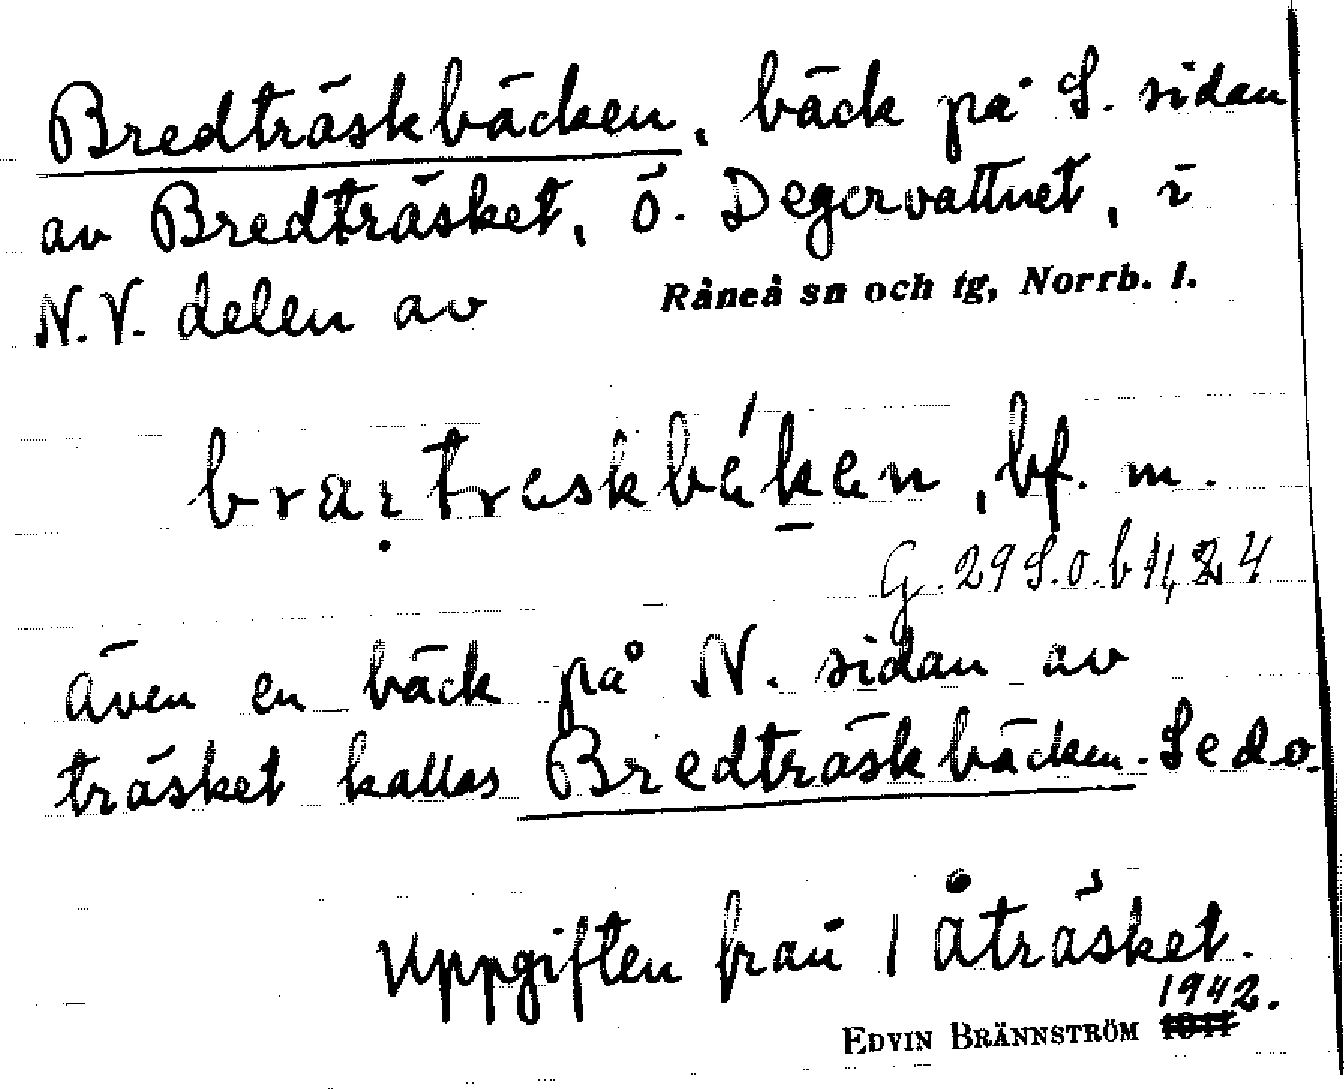 Bredträskbäcken, bäck på S. sidan
av Bredträsket, ö. Degervattnet, i
N.V. delen av Råneå sn och tg, Norrb. l.
bf. m.
G. 29 S.o.b 11, 24
även en bäck på N. sidan av
träsket kallas Bredträskbäcken. Se do.
Uppgiften från 1 Åträsket.
1942.
EDVIN BRÄNNSTRÖM 1941